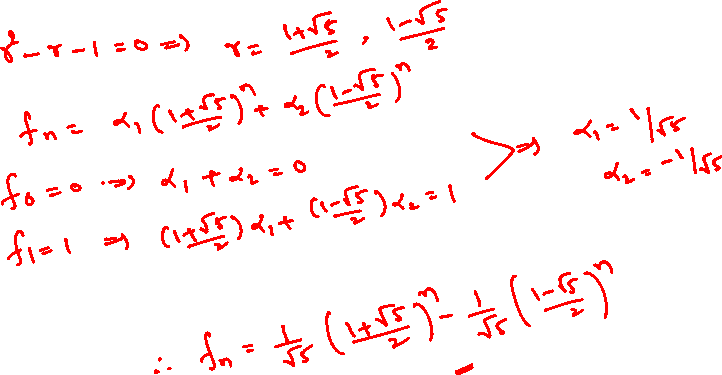 r² - r - 1 = 0 => r = (1+√5)/2 , (1-√5)/2
fn = α₁ ((1+√5)/2)ⁿ + α₂ ((1-√5)/2)ⁿ
f₀ = 0 => α₁ + α₂ = 0
f₁ = 1 => ((1+√5)/2) α₁ + ((1-√5)/2) α₂ = 1
=> α₁ = 1/√5
α₂ = -1/√5
∴ fn = 1/√5 ((1+√5)/2)ⁿ - 1/√5 ((1-√5)/2)ⁿ